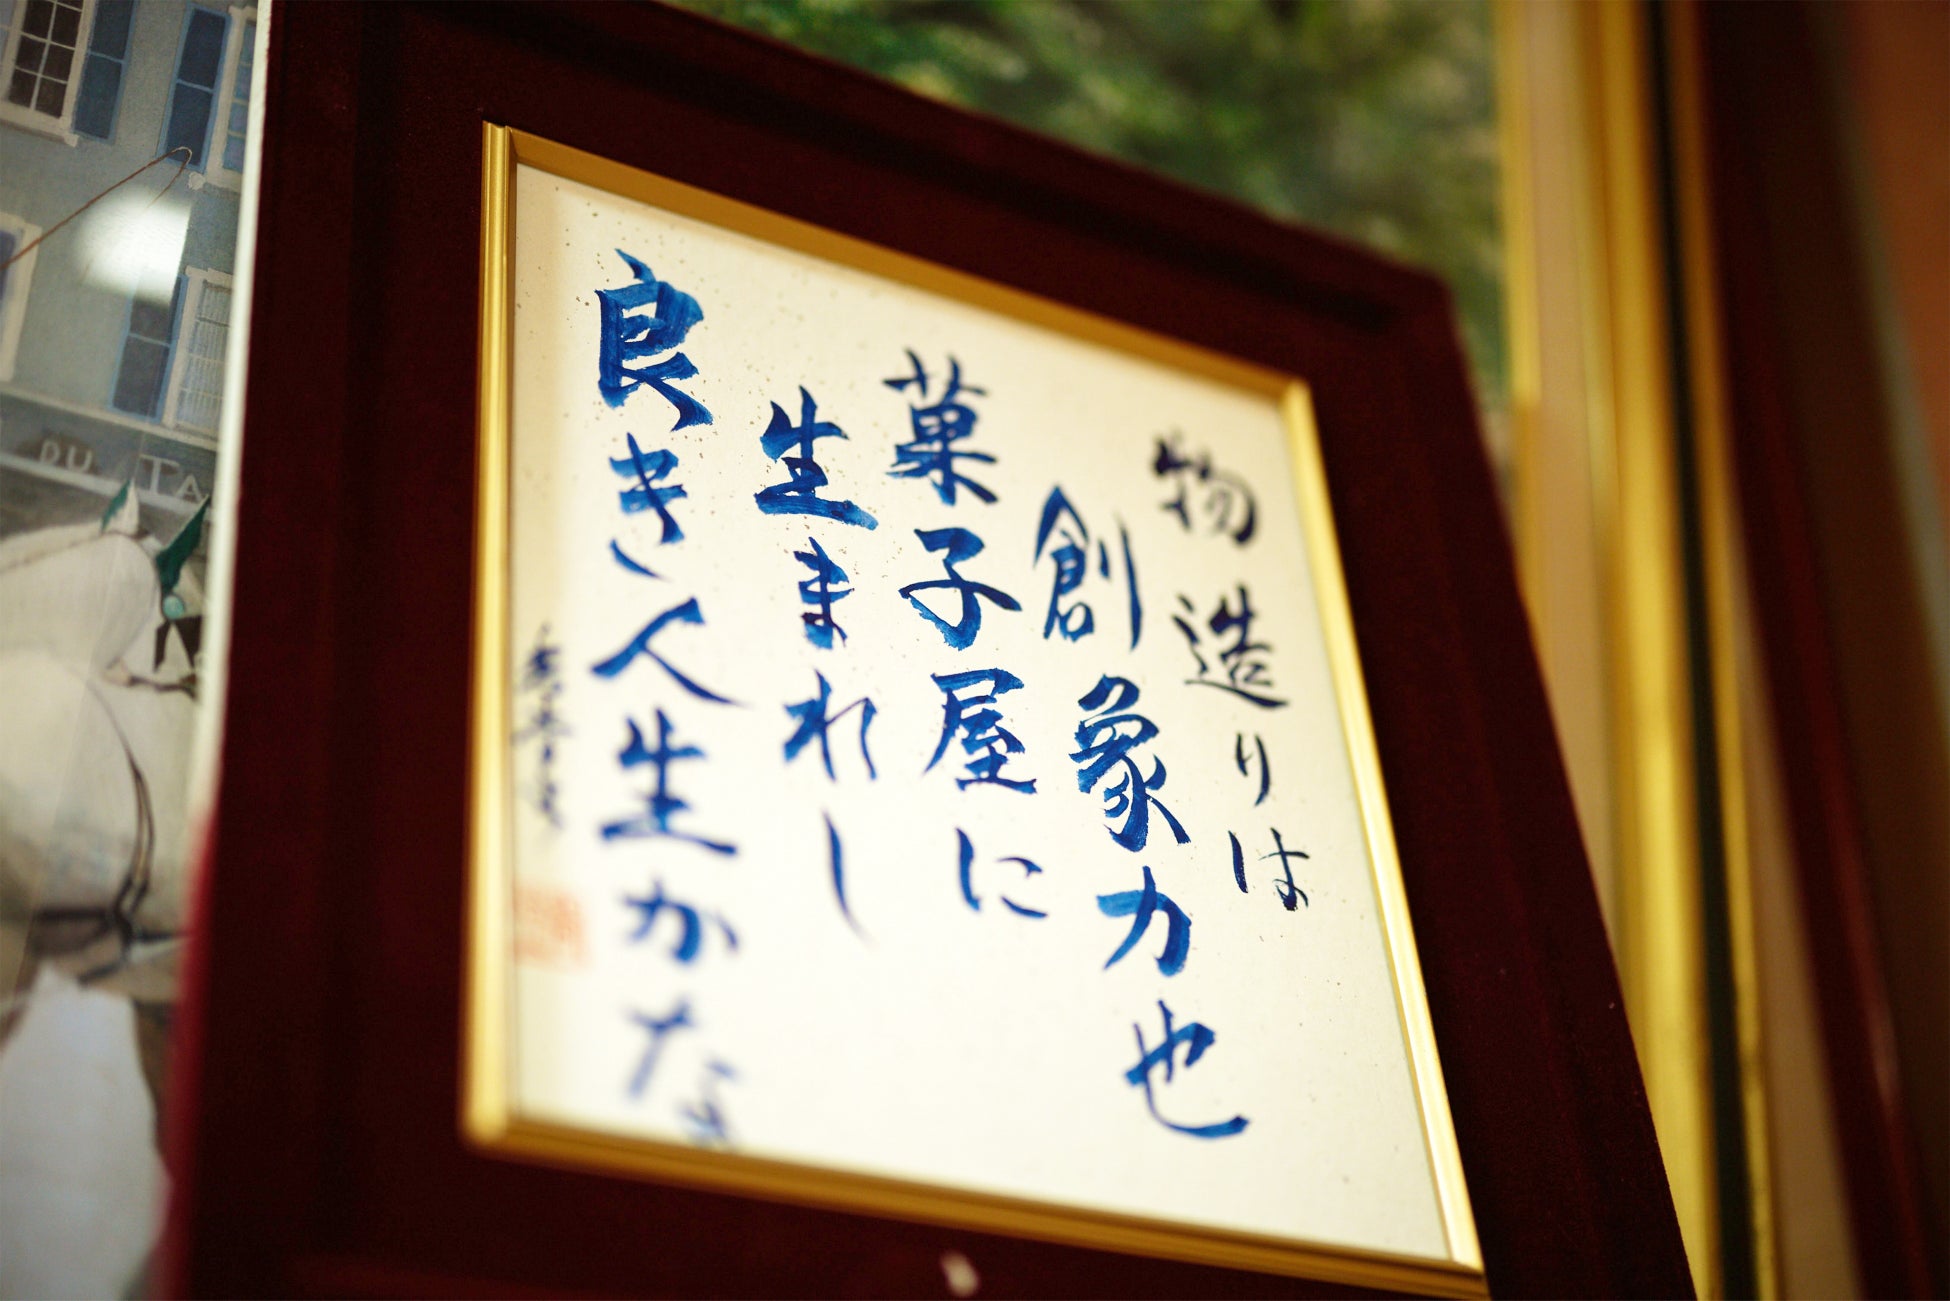 物造りは
創象力也
菓子屋に
生まれし
良き人生かな
DU TA